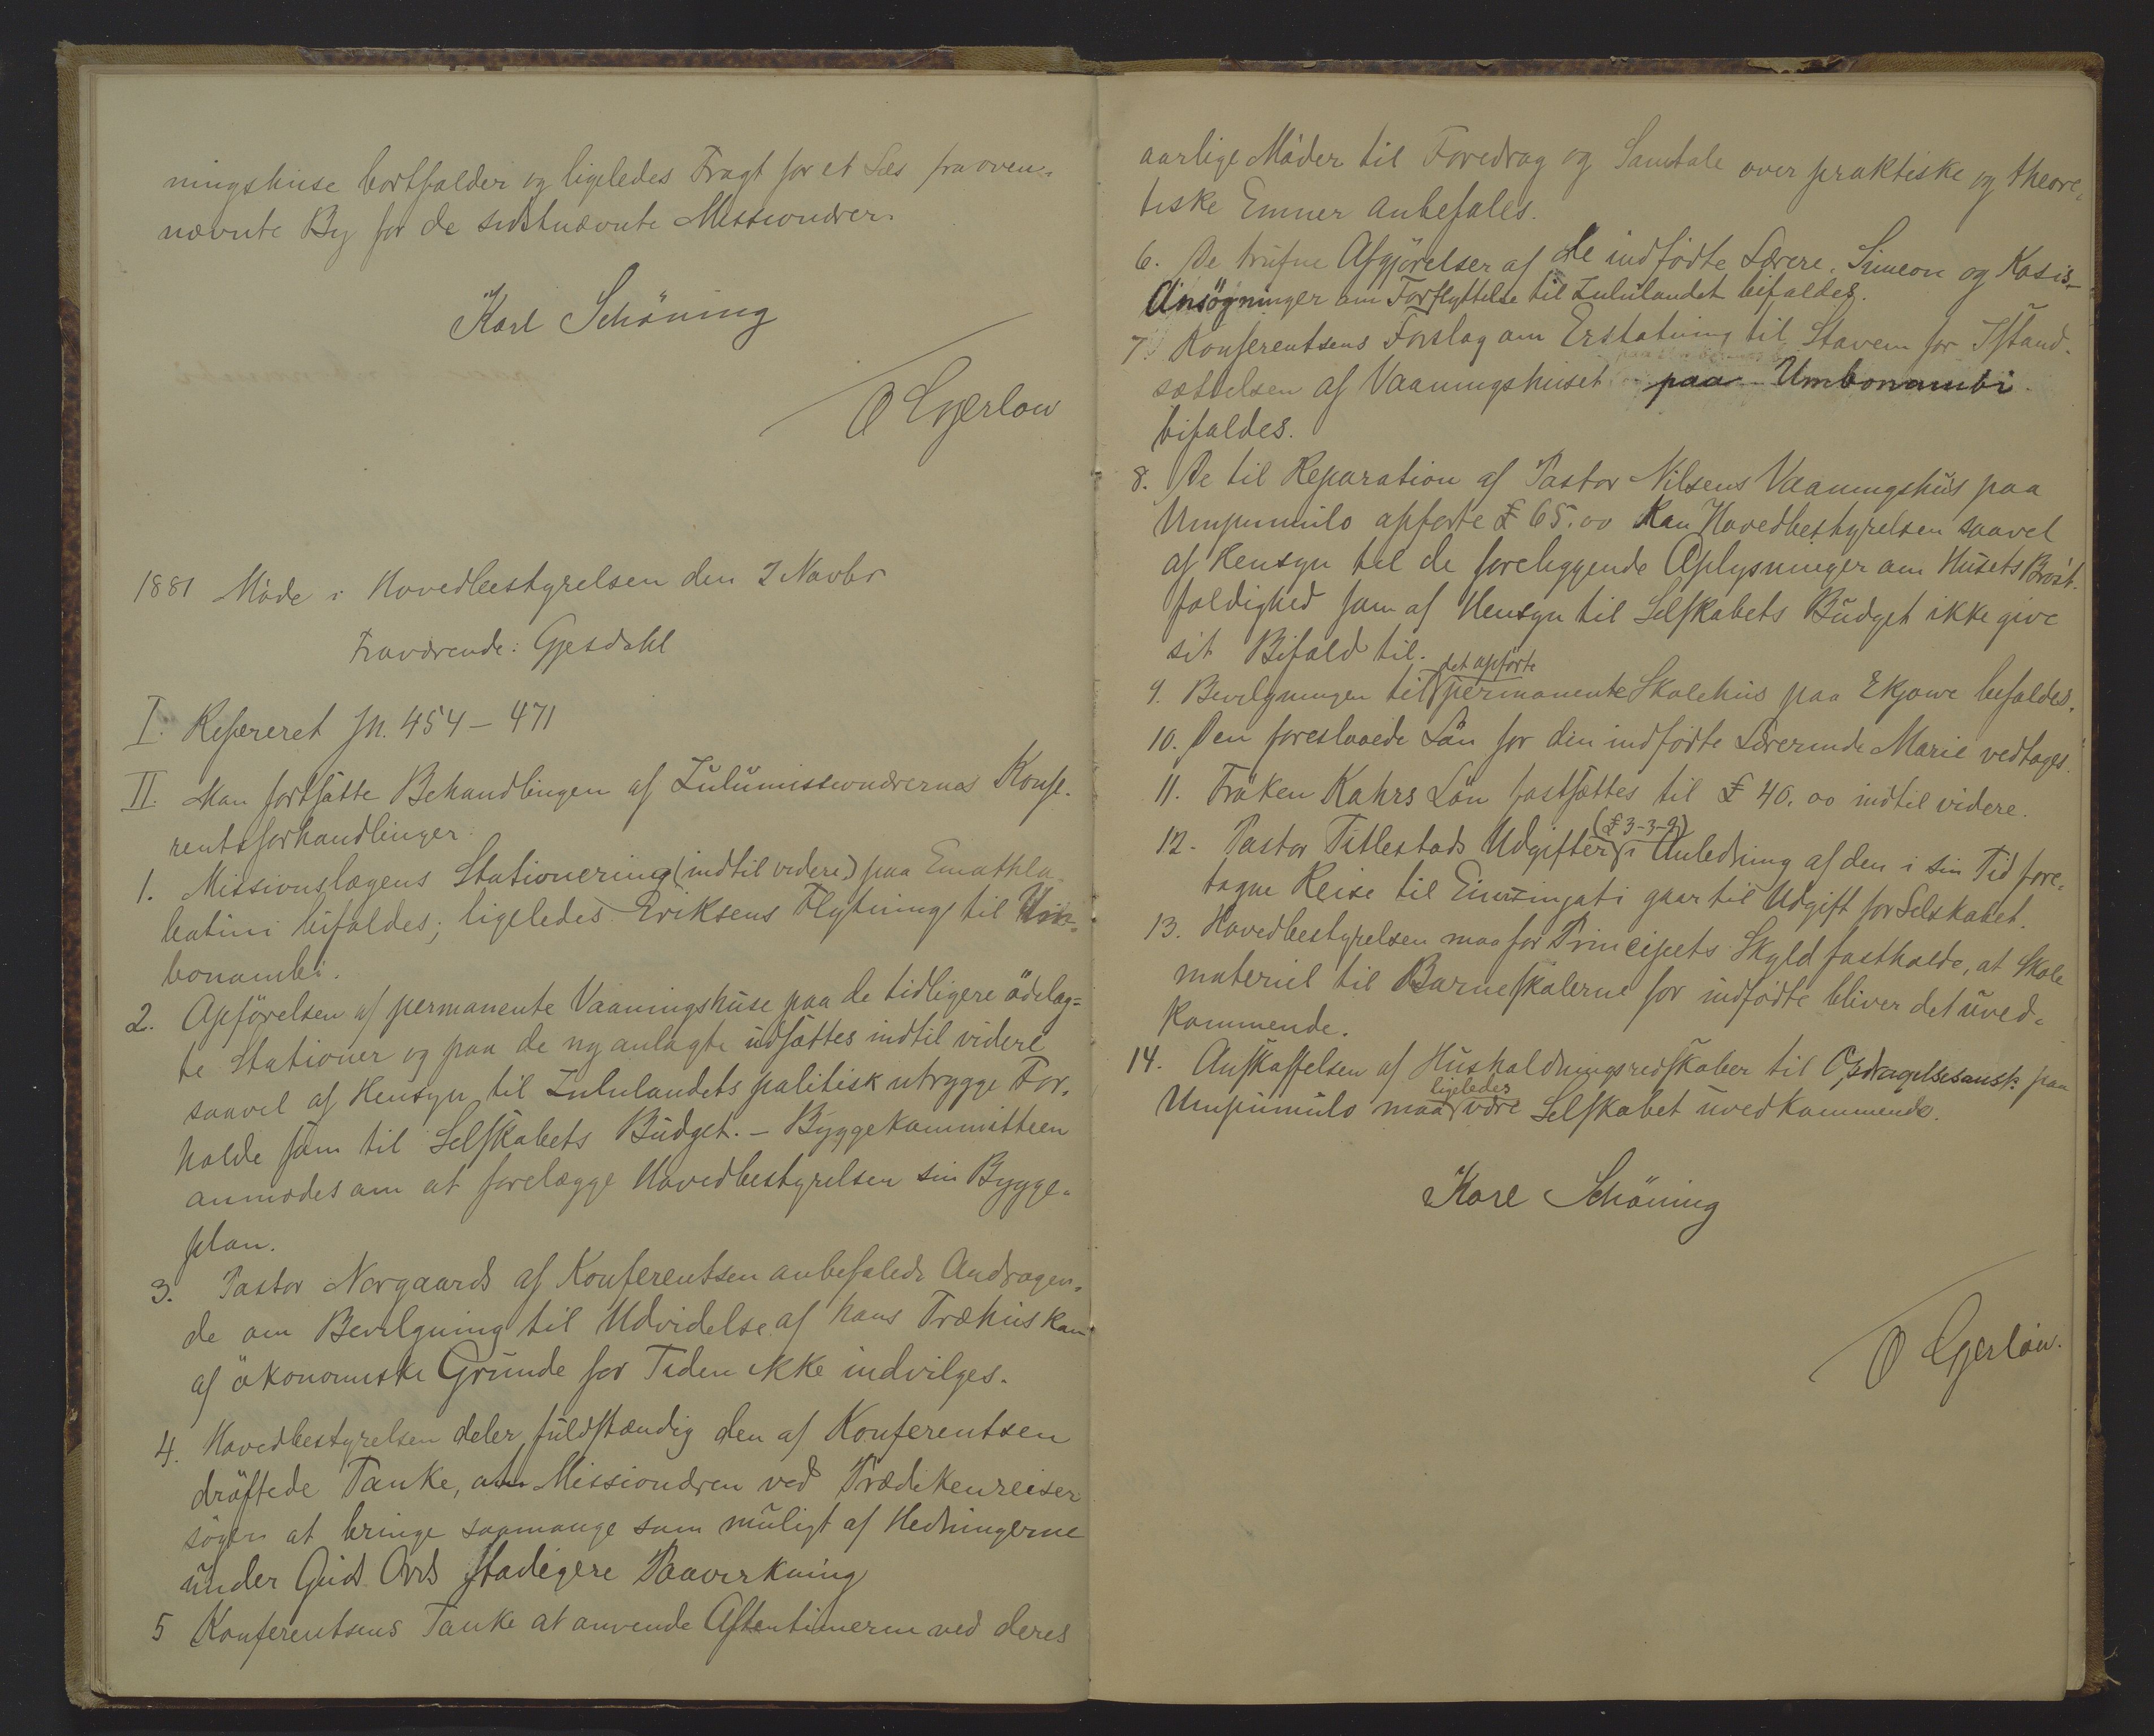 ningshuse bortfalder og ligeledes Fragt for et Læs fra oven-
nævnte By for de sidstnævnte Missionærer.
Karl Schöning
O Gjerløw
1881 Möde i Hovedbestyrelsen den 2 Novbr
Fraværende: Gjesdahl
I. Refereret Jn. 454 - 471
II. Man fortsatte Behandlingen af Zulumissionærernes Konfe-
rentsforhandlinger.
1. Missionslægens Stationering (indtil videre) paa Emathla-
batini bifaldes; ligeledes Eriksens Flytning til Um-
bonambi.
2. Opförelsen af permanente Vaaningshuse paa de tidligere ödelag=
te Stationer og paa de nyanlagte udsættes indtil videre
saavel af Hensyn til Zululandets politisk utrygge For-
holde som til Selskabets Budget. - Byggekommitteen
anmodes om at forelægge Hovedbestyrelsen sin Bygge-
plan.
3. Pastor Norgaards af Konferentsen anbefalede Andragen-
de om Bevilgning til Udvidelse af hans Træhus kan
af ökonomiske Grunde for Tiden ikke indvilges.
4. Hovedbestyrelsen deler fuldstændig den af Konferentsen
dröftede Tanke, at Missionæren ved Prædikenreiser
söger at bringe saamange som muligt af Hedningerne
under Guds Ords stadigere Paavirkning
5 Konferentsens Tanke at anvende Aftentimerne ved deres
aarlige Möder til Foredrag og Samtale over praktiske og theore-
tiske Emner anbefales.
6. De trufne Afgjörelser af de indfödte Lærere, Simeon og Kasis
Ansögninger om Forflyttelse til Zululandet bifaldes.
7. Konferentsens Forslag om Erstatning til Stavem for Istand-
sættelsen af Vaaningshuset paa Umbonambi
bifaldes.
8. De til Reparation af Pastor Nilsens Vaaningshus paa
Umpumulo opförte £ 65.00 kan Hovedbestyrelsen saavel
af Hensyn til de foreliggende Oplysninger om Husets Bröst-
foldighed som af Hensyn til Selskabets Budget ikke give
sit Bifald til.
9. Bevilgningen til det opförte permanente Skolehus paa Ekjowe bifaldes.
10. Den foreslaaede Lön for den indfödte Lærerinde Marie vedtages.
11. Fröken Kahrs Lön fastsættes til £ 40.00 indtil videre.
12. Pastor Titlestads Udgifter (£ 3-3-9) i Anledning af den i sin Tid fore-
tagne Reise til Emzingati gaar til Udgift for Selskabet.
13. Hovedbestyrelsen maa for Principets Skyld fastholde, at Skole
materiel til Barneskolerne for indfödte bliver det uved-
kommende.
14. Anskaffelsen af Husholdningsredskaber til Opdragelsesanst. paa
Umpumulo maa ligeledes være Selskabet uvedkommende.
Karl Schöning
O Gjerløw.